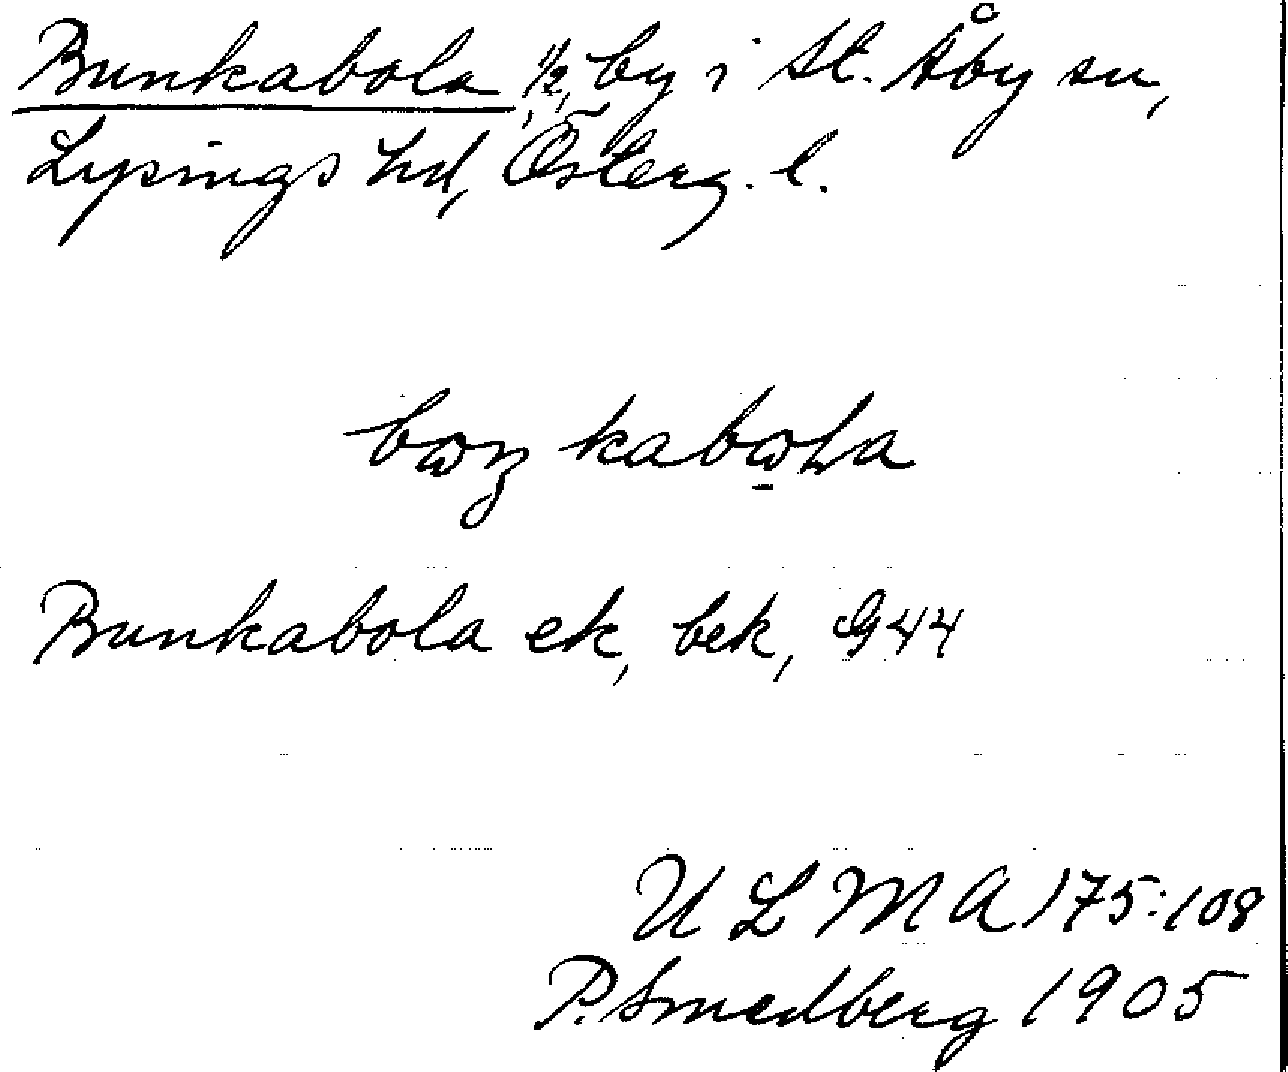 Bunkabola, 1/2, by i St. Åby sn,
Lysings hd, Österg. l.
bωŋkabωla
Bunkabola ek, bek, G44
ULMA 175:108
P. Smedberg 1905